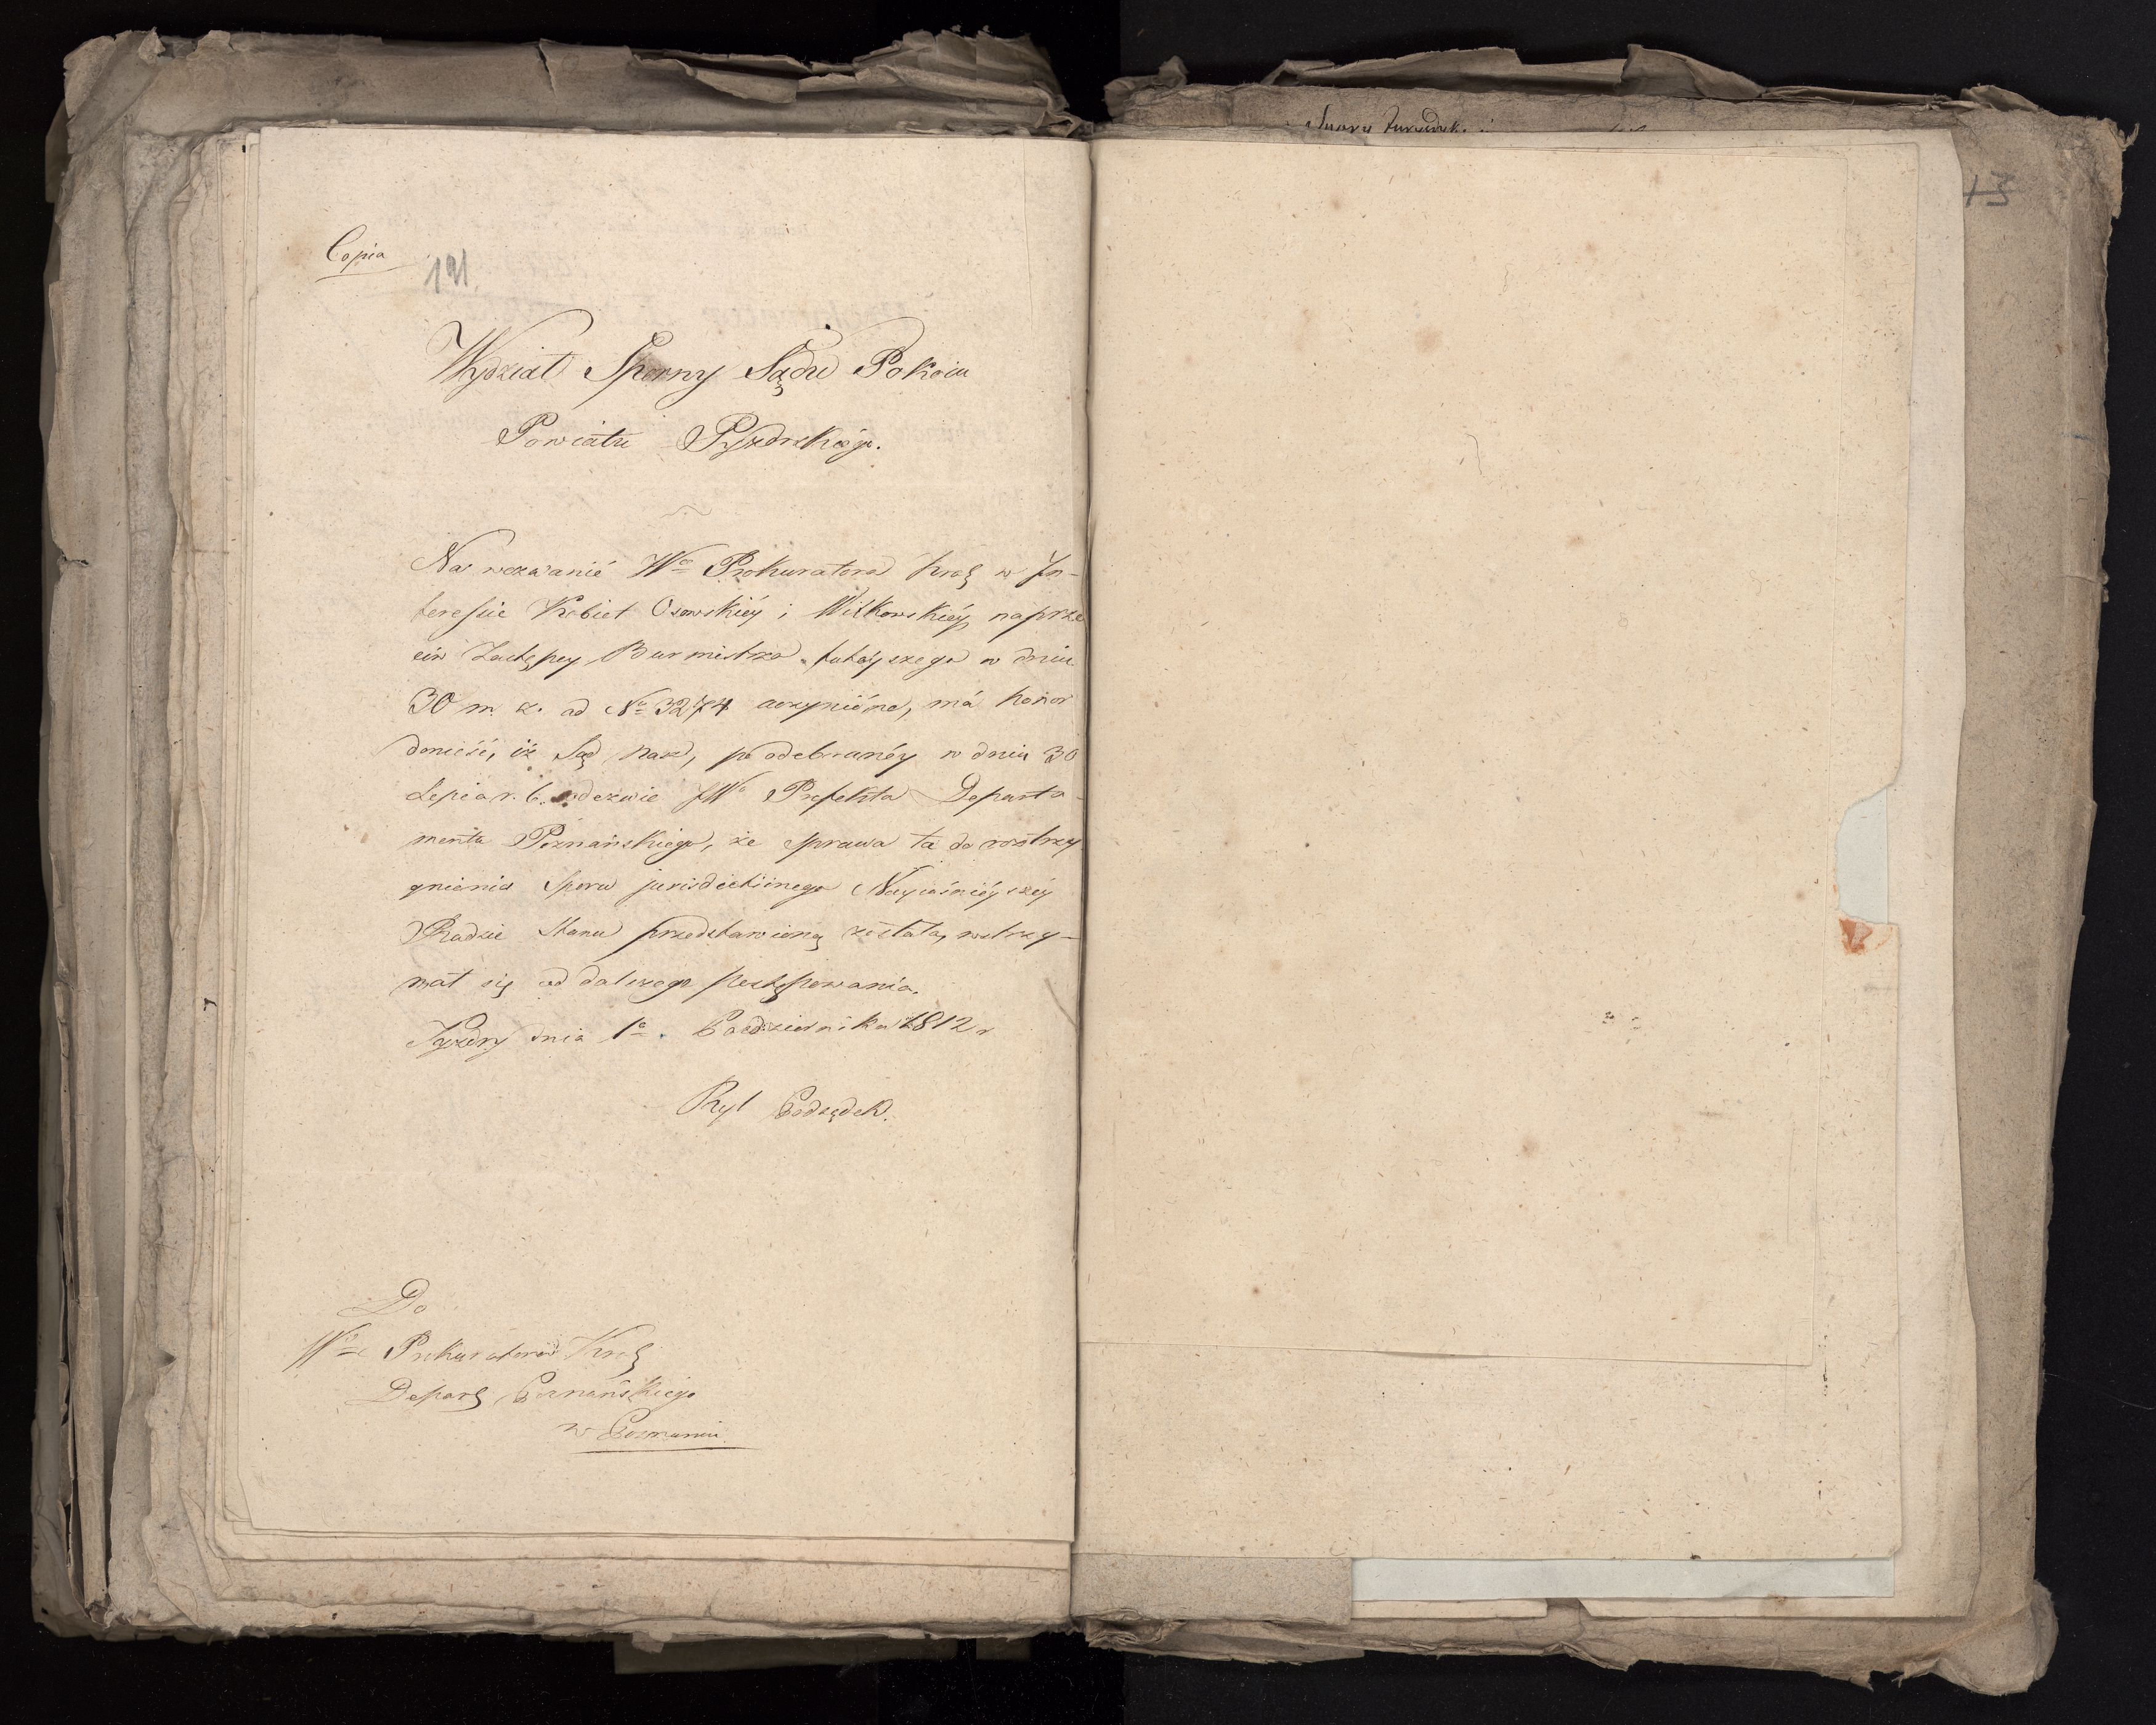 Copia
191.
Wydział Sporny Sądu Pokoiu
Powiatu Pyzdrskiego.
Na wezwanié Wo Prokuratora Krol w In-
teressie Kobiet Osowskiéy i Witkowskiéy naprze
ciw Zastępcy Burmistrza tutéyszego w dniu
30 m. z. ad No 3274 uczynióne, má honor
donieść, iż Sąd nasz, po odebranéy w dniu 30
Lipca r. b. odezwie JWo Prefekta Departa-
mentu Poznańskiego, że sprawa ta do rozstrzy
gnienia Sporu jurisdictiinego Nayiaśniéyszéy
Radzie Stanu przedstawioną została, wstrzy-
mał się od dalszego postępowania.
Pyzdry dnia 1o. Październíka 1812 r
Ryl Podsędek.
Do
Wo Prokuratora Krol
Depart Poznańskiego
w Poznaniu.
13